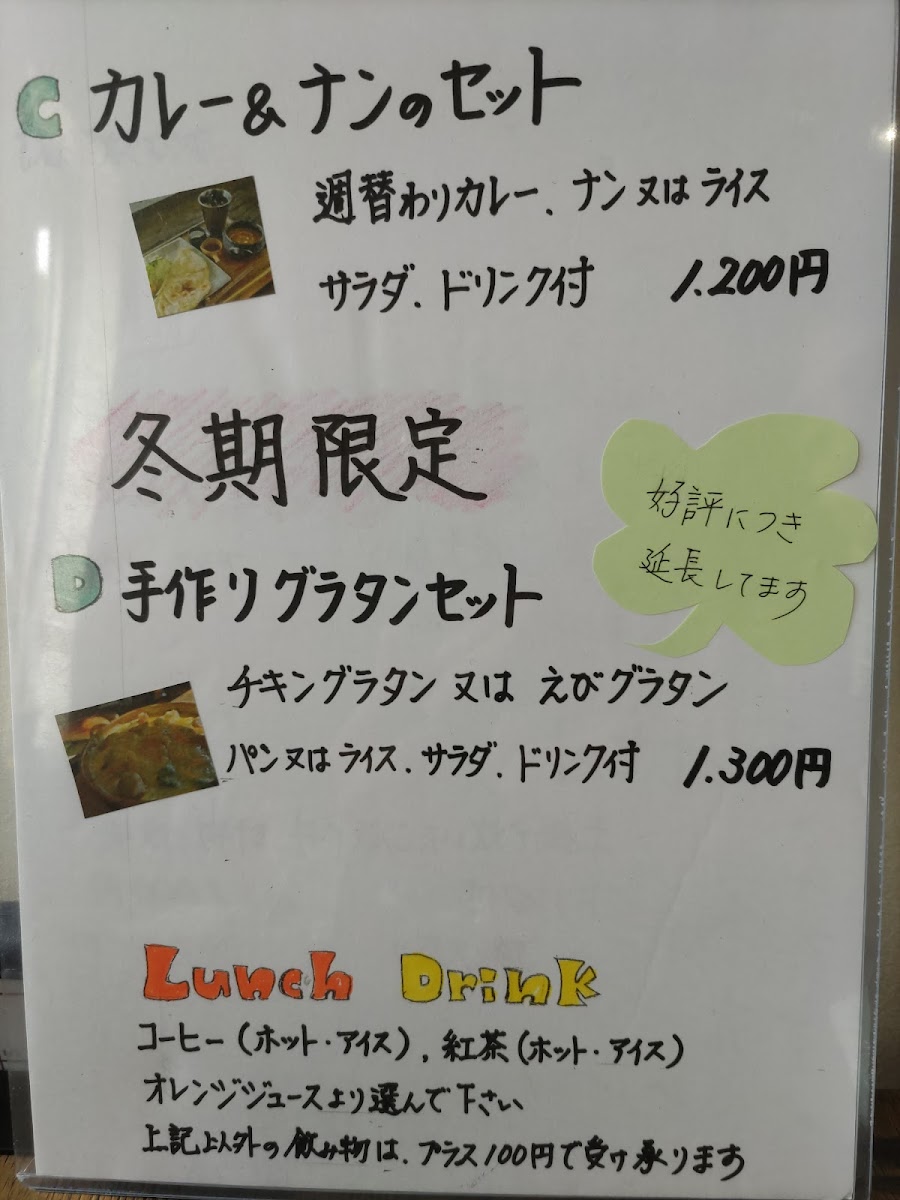 C カレー&ナンのセット
週替わりカレー、ナン又はライス
サラダ、ドリンク付 1.200円
冬期限定
好評につき
延長してます
D 手作りグラタンセット
チキングラタン又はえびグラタン
パン又はライス、サラダ、ドリンク付 1.300円
Lunch Drink
コーヒー(ホット・アイス)、紅茶(ホット・アイス)
オレンジジュースより選んで下さい
上記以外の飲み物は、プラス100円で受け承ります